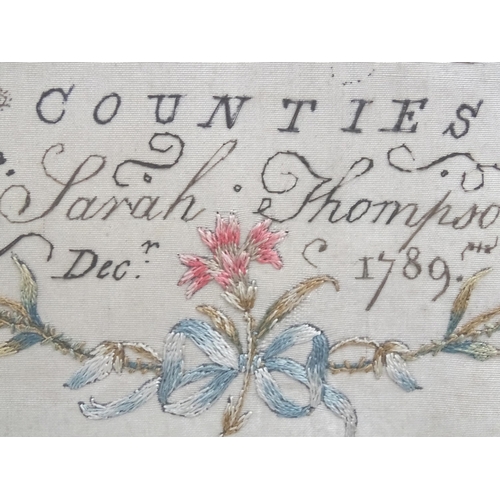 COUNTIES
Sarah Thompso
Dec.r 1789.